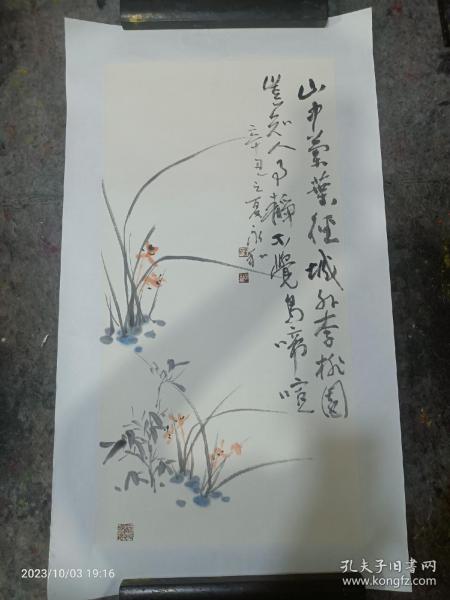 山中兰叶径城外李桃园
岂知人事静不觉鸟啼喧
辛丑之夏
2023/10/03 19:16
孔夫子旧书网
www.kongfz.com